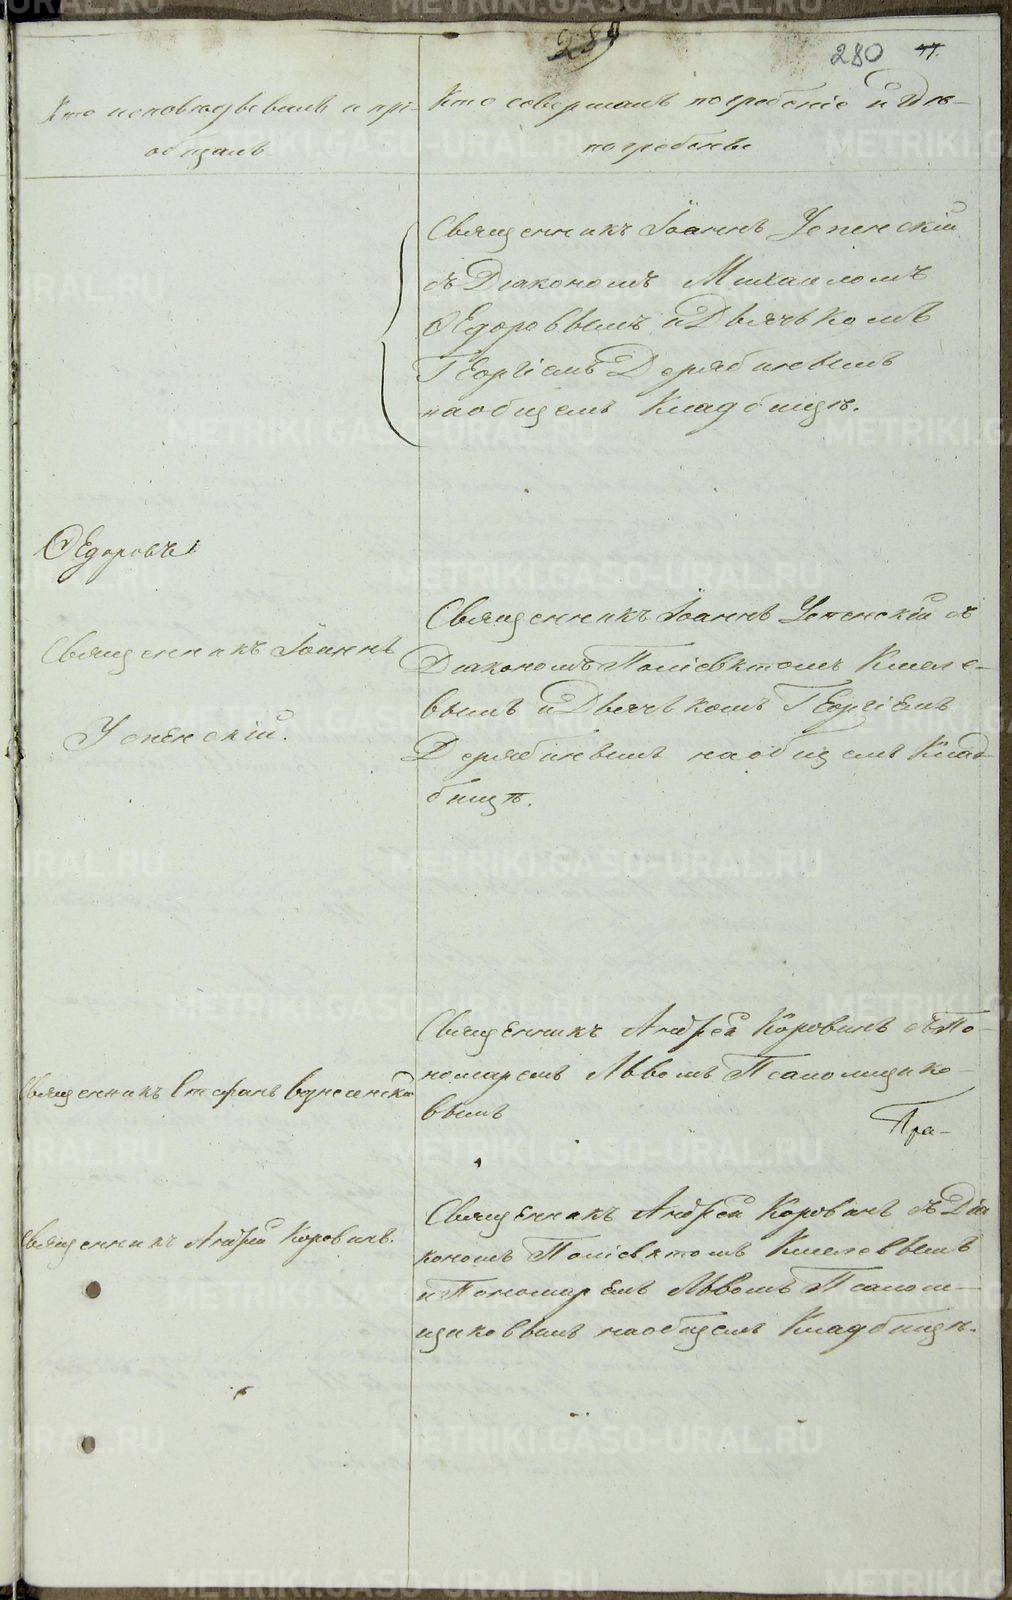 289
280 47.
Кто исповѣдывалъ и прі-
общалъ
Кто совершалъ погребеніе и Гдѣ
погребены
Священникъ Іоаннъ Успенскій
съ Діакономъ Михаиломъ
Ѳедоровымъ и Дьячькомъ
Георгіемъ Дерябинымъ
на общемъ Кладбищѣ.
Ѳедоровъ
Священникъ Іоаннъ
Успенскій.
Священникъ Іоаннъ Успенскій съ
Діакономъ Поліевктомъ Кмеле-
вымъ и Дьячькомъ Георгіемъ
Дерябинымъ на общемъ Клад
бищѣ.
Священникъ Стефанъ Вознесенскій
Священникъ Андрей Коровинъ съ По-
номаремъ Львомъ Псаломщико-
вымъ
Пра-
Священникъ Андрей Коровинъ.
Священникъ Андрей Коровинъ съ Діа
кономъ Поліевктомъ Кмелевымъ
и Пономаремъ Львомъ Псалом-
щиковымъ на общемъ Кладбищѣ.
METRIKI.GASO-URAL.RU